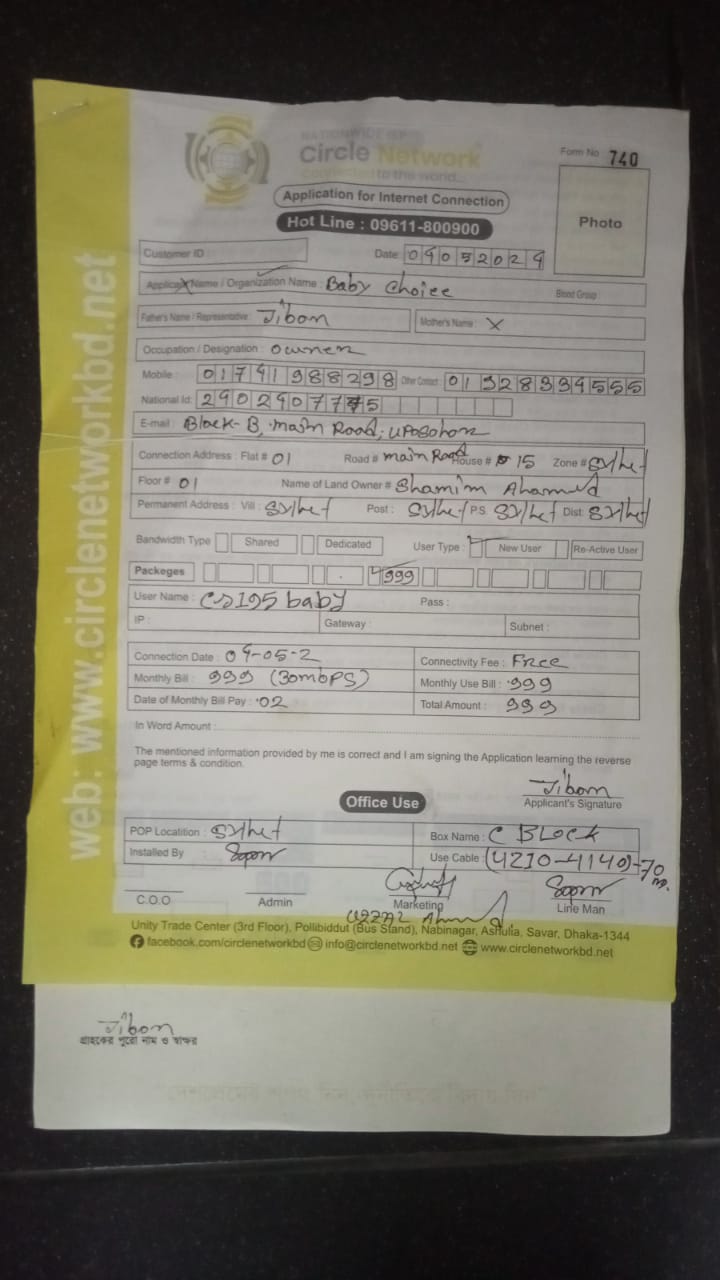 NATIONWIDE ISP
Circle Network
Connected to the world...
Form No 740
Application for Internet Connection
Hot Line : 09611-800900
Photo
Customer ID
Date: 04052024
Applicant Name / Organization Name : Baby Choice
Blood Group :
Father's Name / Representative : Jibon
Mother's Name : X
Occupation / Designation : Owner
Mobile : 01741988298 Other Contact : 01928334555
National Id: 2402407775
E-mail : Block-B, main Road, uposohor
Connection Address : Flat # 01 Road # main Road House # 15 Zone # Sylhet
Floor # 01 Name of Land Owner # Shamim Ahamed
Permanent Address : Vill : Sylhet Post : Sylhet P.S Sylhet Dist: Sylhet
Bandwidth Type Shared Dedicated User Type : New User Re-Active User
Packeges 999
User Name : baby Pass :
IP : Gateway : Subnet :
Connection Date : 04-05-2 Connectivity Fee : Free
Monthly Bill : 999 (30mbPS) Monthly Use Bill : 999
Date of Monthly Bill Pay : 02 Total Amount : 999
In Word Amount :
The mentioned information provided by me is correct and I am signing the Application learning the reverse
page terms & condition.
Jibon
Applicant's Signature
Office Use
POP Locatition : Sylhet Box Name : C BLOCK
Installed By Use Cable : (4210-4140)-70 m.
C.O.O Admin Marketing Line Man
Unity Trade Center (3rd Floor), Pollibiddut (Bus Stand), Nabinagar, Ashulia, Savar, Dhaka-1344
facebook.com/circlenetworkbd info@circlenetworkbd.net www.circlenetworkbd.net
web: www.circlenetworkbd.net
Jibon
গ্রাহকের পুরো নাম ও স্বাক্ষর